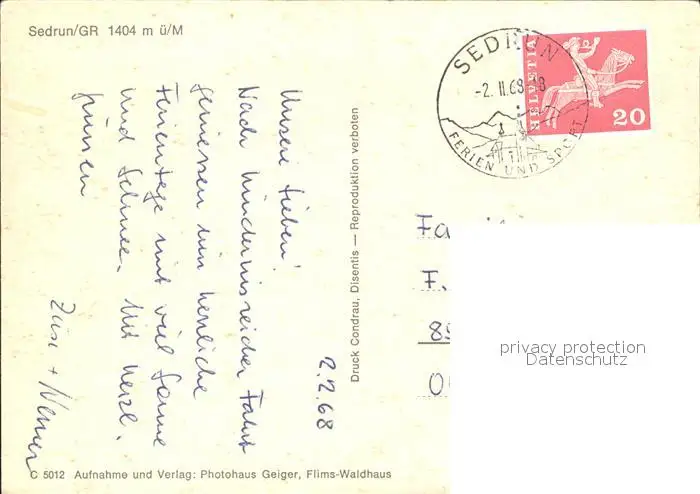 Sedrun/GR 1404 m ü/M
2.2.68
Unsere Lieben!
Nach hindernisreicher Fahrt
geniessen wir herrliche
Ferientage mit viel Sonne
und Schnee. Mit herzl.
grüssen
+ Werner
Druck Condrau, Disentis — Reproduktion verboten
C 5012 Aufnahme und Verlag: Photohaus Geiger, Flims-Waldhaus
SEDRUN
-2. II. 68 - 18
FERIEN UND SPORT
HELVETIA
20
F.
privacy protection
Datenschutz